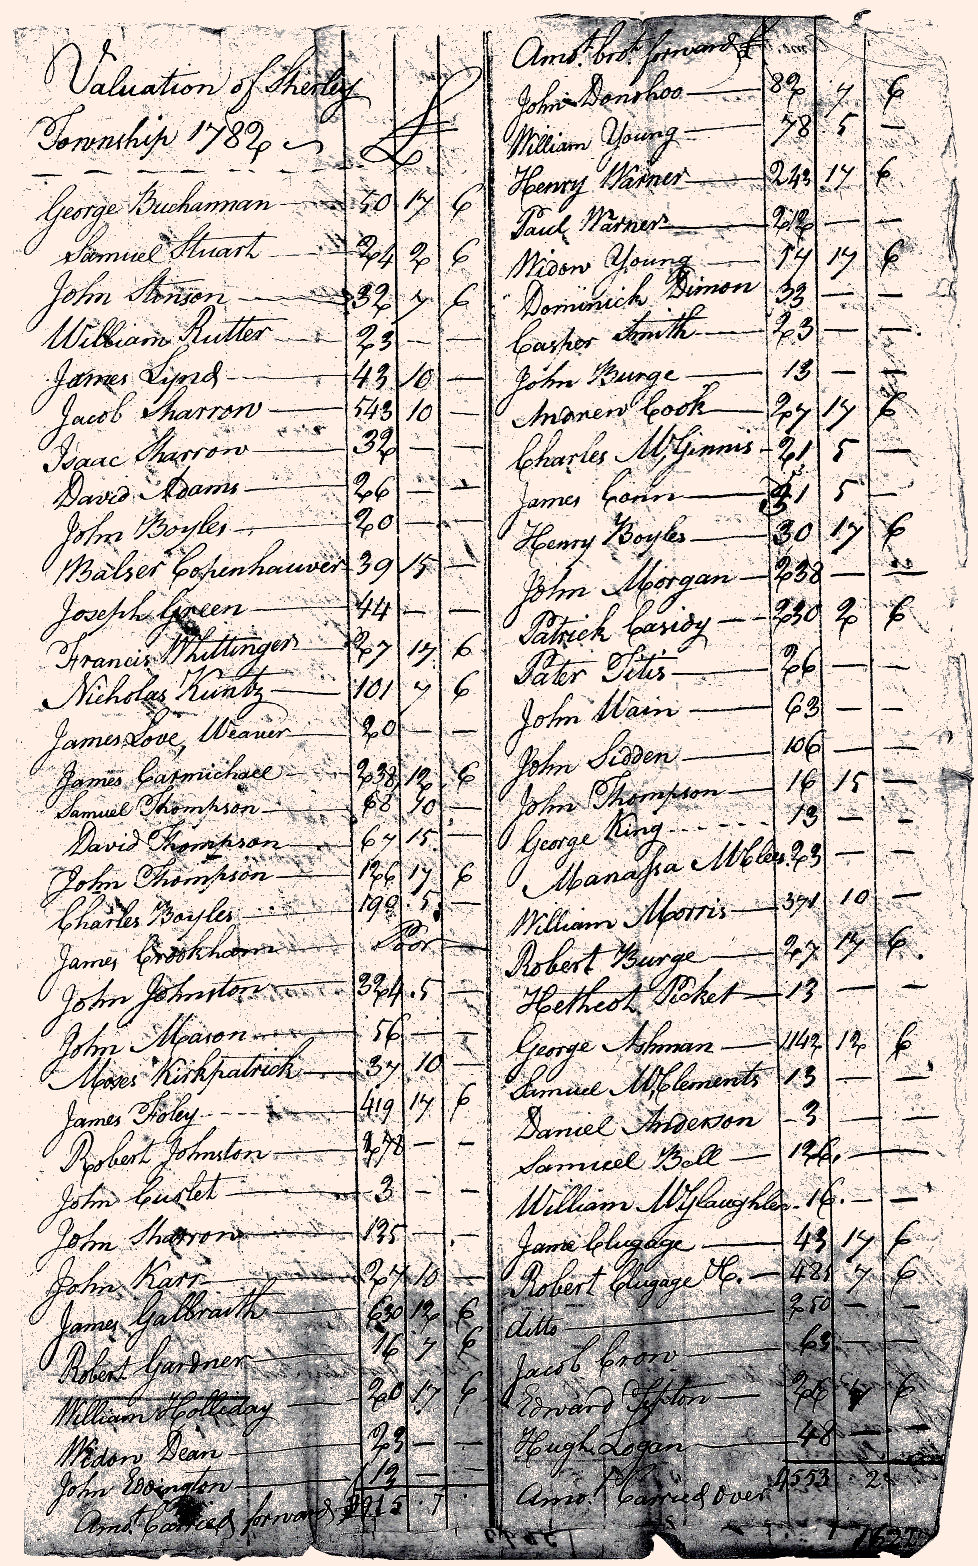 Valuation of Sherley
Township 1782 £
George Buchannan 50 17 6
Samuel Stuart 24 2 6
John Stinson 32 7 6
William Rutter 23 — —
James Lynd 43 10 —
Jacob Sharrow 543 10 —
Isaac Sharrow 32 — —
David Adams 26 — —
John Boyles 20 — —
Balser Copenhauver 39 15 —
Joseph Green 44 — —
Francis Whittinger 27 17 6
Nicholas Kuntz 101 7 6
James Love, Weaver 20 — —
James Carmichael 238 12 6
Samuel Thompson 68 10 —
David Thompson 67 15 —
John Thompson 126 17 6
Charles Boyles 199 5 —
James Crookham Poor
John Johnston 324 5 —
John Mason 56 — —
Moses Kirkpatrick 37 10 —
James Foley 419 17 6
Robert Johnston 278 — —
John Curlet 3 — —
John Sharron 135 — —
John Karr 27 10 —
James Galbraith 630 12 6
Robert Gardner 16 7 6
William Holleday 20 17 6
Widow Dean 23 — —
John Eddington 13 — —
Amot. Carried forward
Amot. brot. forward £
John Donohoo 82 7 6
William Young 78 5 —
Henry Warner 243 17 6
Paul Warner 212 — —
Widow Young 17 17 6
Dominick Dimon 33 — —
Casher Smith 23 — —
John Burge 13 — —
Andrew Cook 27 17 6
Charles McGinnis 21 5 —
James Conn 31 5 —
Henry Boyles 30 17 6
John Morgan 238 — —
Patrick Casidy 230 2 6
Pater Titis 26 — —
John Wain 63 — —
John Sidden 106 — —
John Thompson 16 15 —
George King 13 — —
Manassa McClees 23 — —
William Morris 371 10 —
Robert Burge 27 17 6
Hethcot Picket 13 — —
George Ashman 442 12 6
Samuel McClements 13 — —
Daniel Anderson 3 — —
Samuel Bell 126 — —
William McGlaughlen 16 — —
Jame Clugage 43 17 6
Robert Clugage 485 7 6
ditto 250 — —
Jacob Crow 63 — —
Edward Tipton 6
Hugh Logan 48 — —
Amo. Carried Over 4553 2